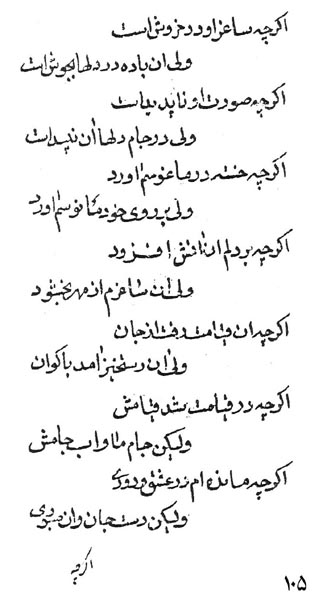 اگرچه ساغر او در خروش است
ولی آن باده در دلها بجوش است
اگرچه صورت او ناپدید است
ولی در جام دلها آن نبید است
اگرچه خسته در ما غوسم آورد
ولی بر روی خود مأنوسم آورد
اگرچه بر دلم آن آتش افزود
ولی آن ساغرم از مهر بخشود
اگرچه آن قیامت رفت از جان
ولی آن رستخیز آمد با کوان
اگرچه در قیامت شد قیامش
ولیکن جام ما و آب جامش
اگرچه مانده ام در عشق و دوری
ولیکن دست جان و آن
اگرچه
۱۰۵